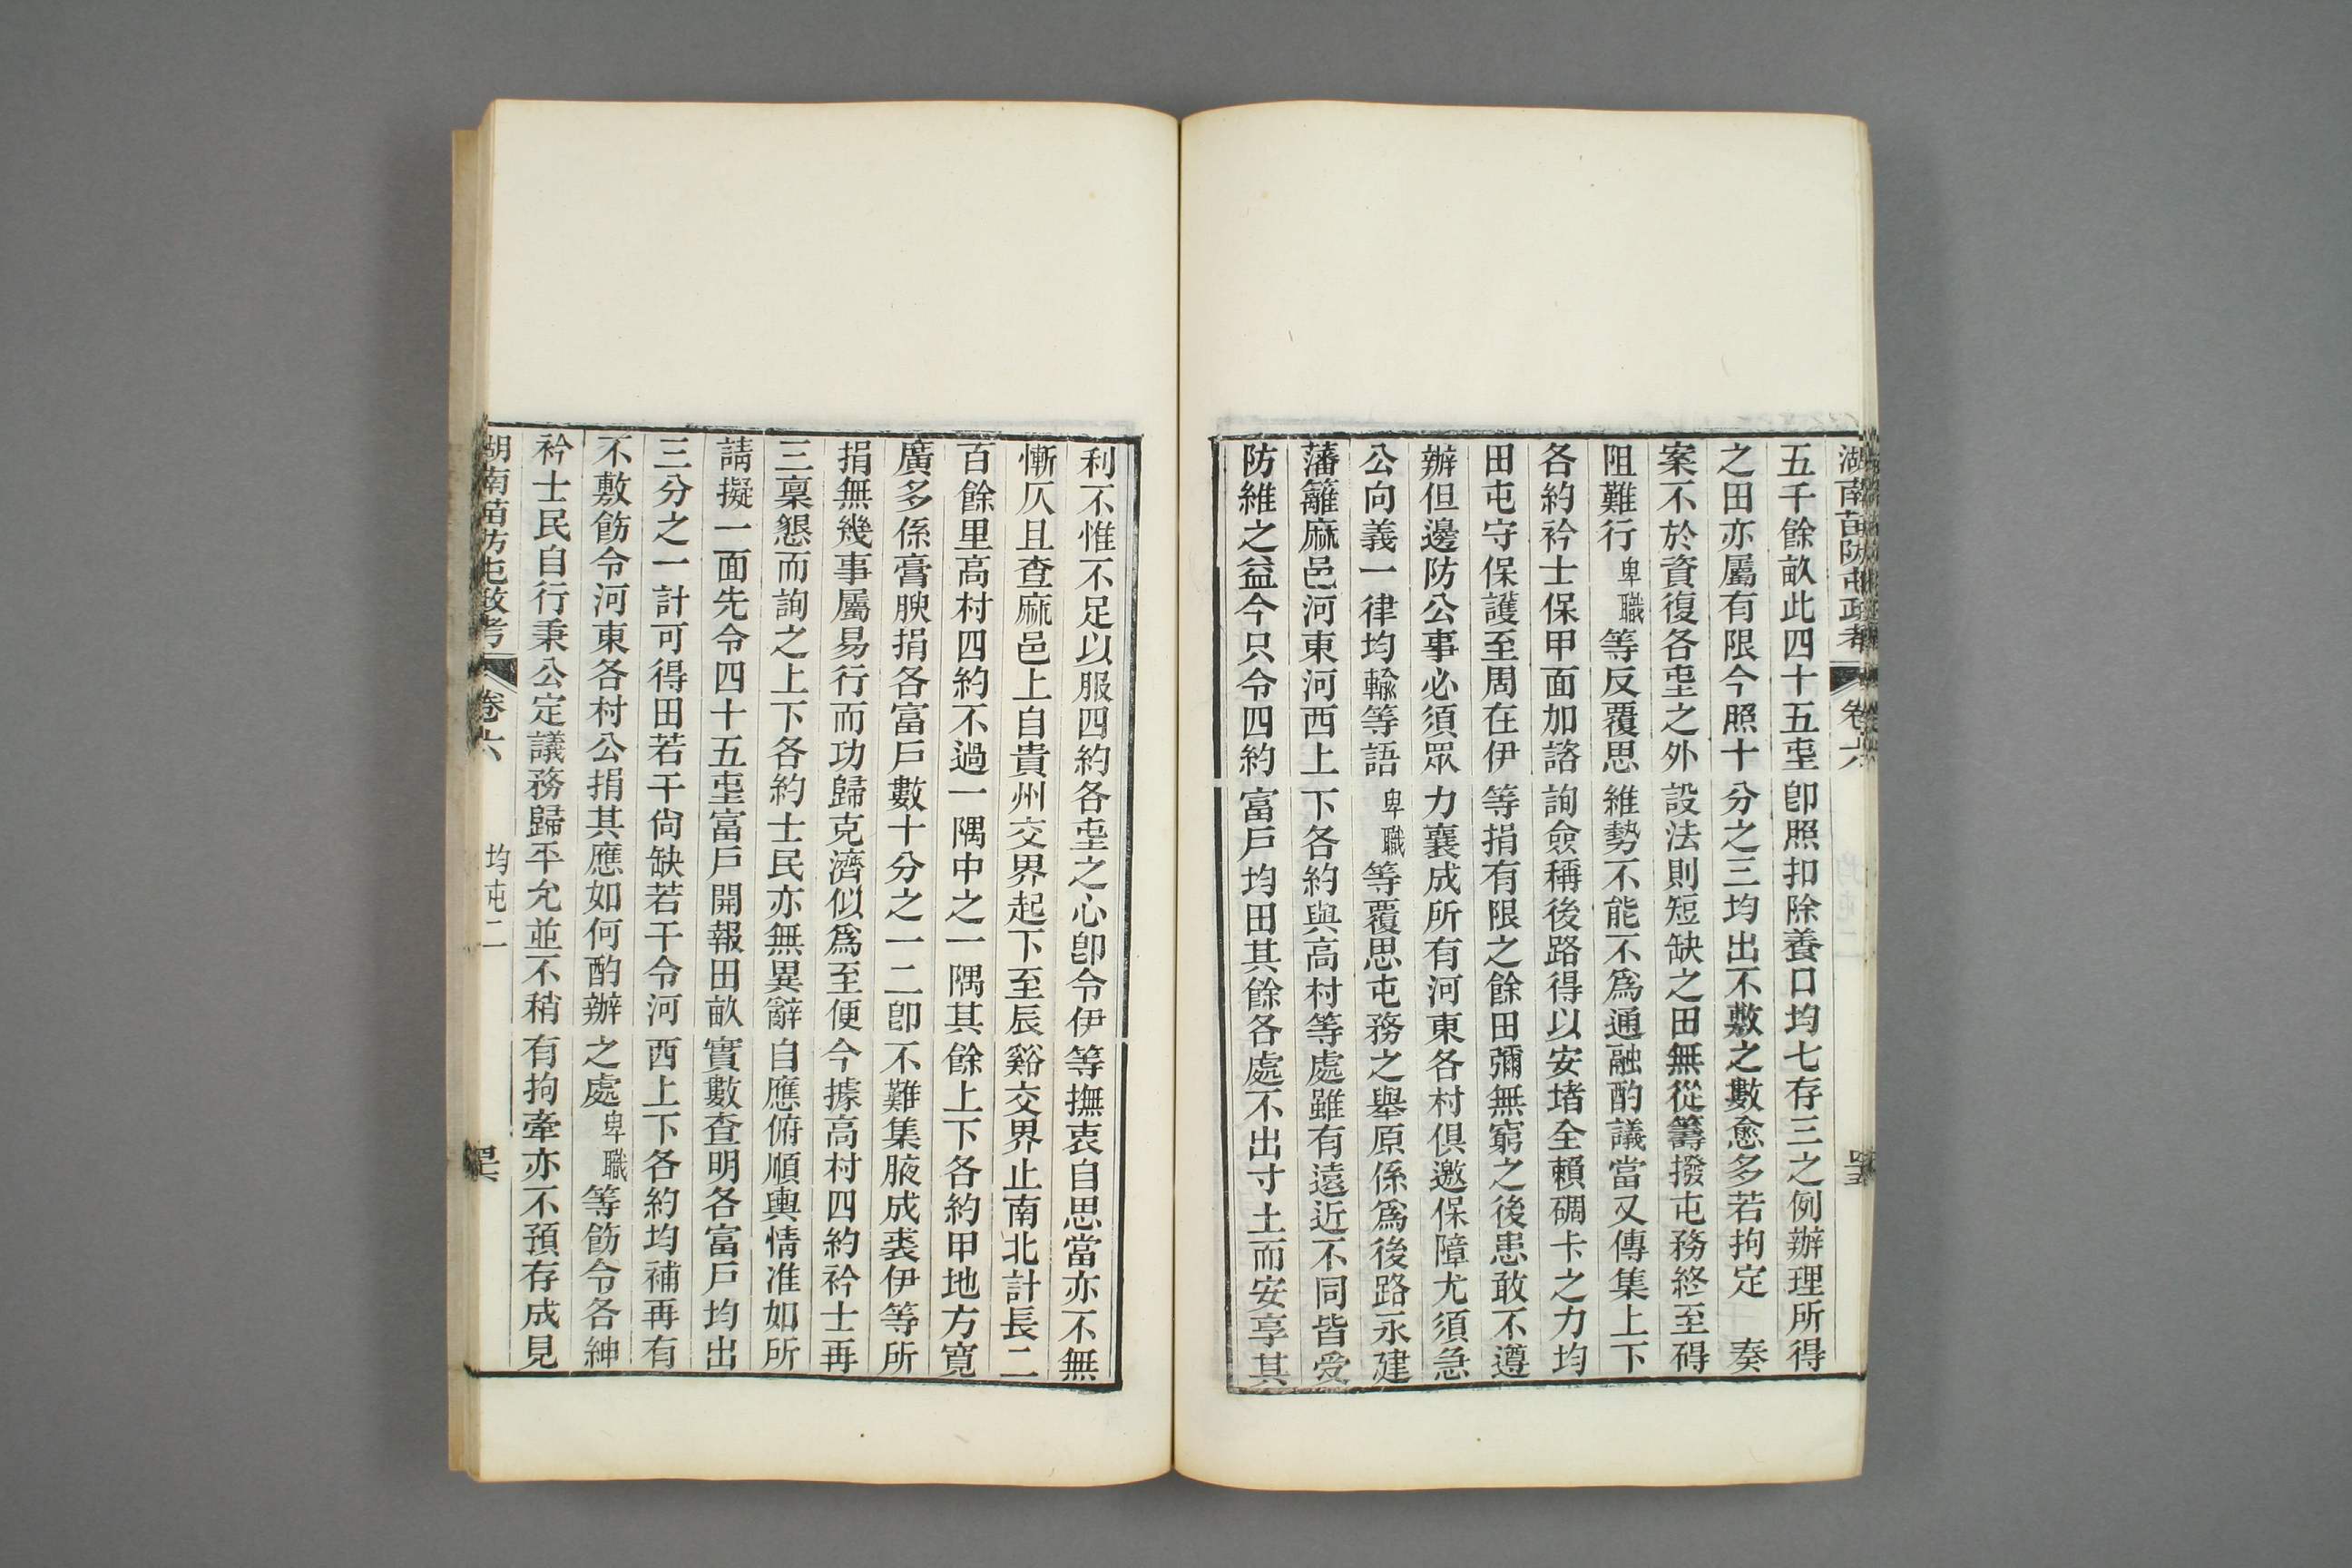 湖南苗防屯政考 卷六
五千餘畝此四十五㐀卽照扣除養口均七存三之例辦理所得
之田亦屬有限今照十分之三均出不敷之數愈多若拘定 奏
案不於資復各㐀之外設法則短缺之田無從籌撥屯務終至碍
阻難行卑職等反覆思維勢不能不爲通融酌議當又傳集上下
各約衿士保甲面加諮詢僉稱後路得以安堵全賴碉卡之力均
田屯守保護至周在伊等捐有限之餘田彌無窮之後患敢不遵
辦但邊防公事必須眾力襄成所有河東各村俱邀保障尤須急
公向義一律均輸等語卑職等覆思屯務之舉原係爲後路永建
藩籬麻邑河東河西上下各約與高村等處雖有遠近不同皆受
防維之益今只令四約富戶均田其餘各處不出寸土而安享其
利不惟不足以服四約各㐀之心卽令伊等撫衷自思當亦不無
慚仄且查麻邑上自貴州交界起下至辰谿交界止南北計長二
百餘里高村四約不過一隅中之一隅其餘上下各約甲地方寬
廣多係膏腴捐各富戶數十分之一二卽不難集腋成裘伊等所
捐無幾事屬易行而功歸克濟似爲至便今據高村四約衿士再
三稟懇而詢之上下各約士民亦無異辭自應俯順輿情准如所
請擬一面先令四十五㐀富戶開報田畝實數查明各富戶均出
三分之一計可得田若干尙缺若干令河西上下各約均補再有
不敷飭令河東各村公捐其應如何酌辦之處卑職等飭令各紳
衿士民自行秉公定議務歸平允並不稍有拘牽亦不預存成見
湖南苗防屯政考 卷六 均屯二